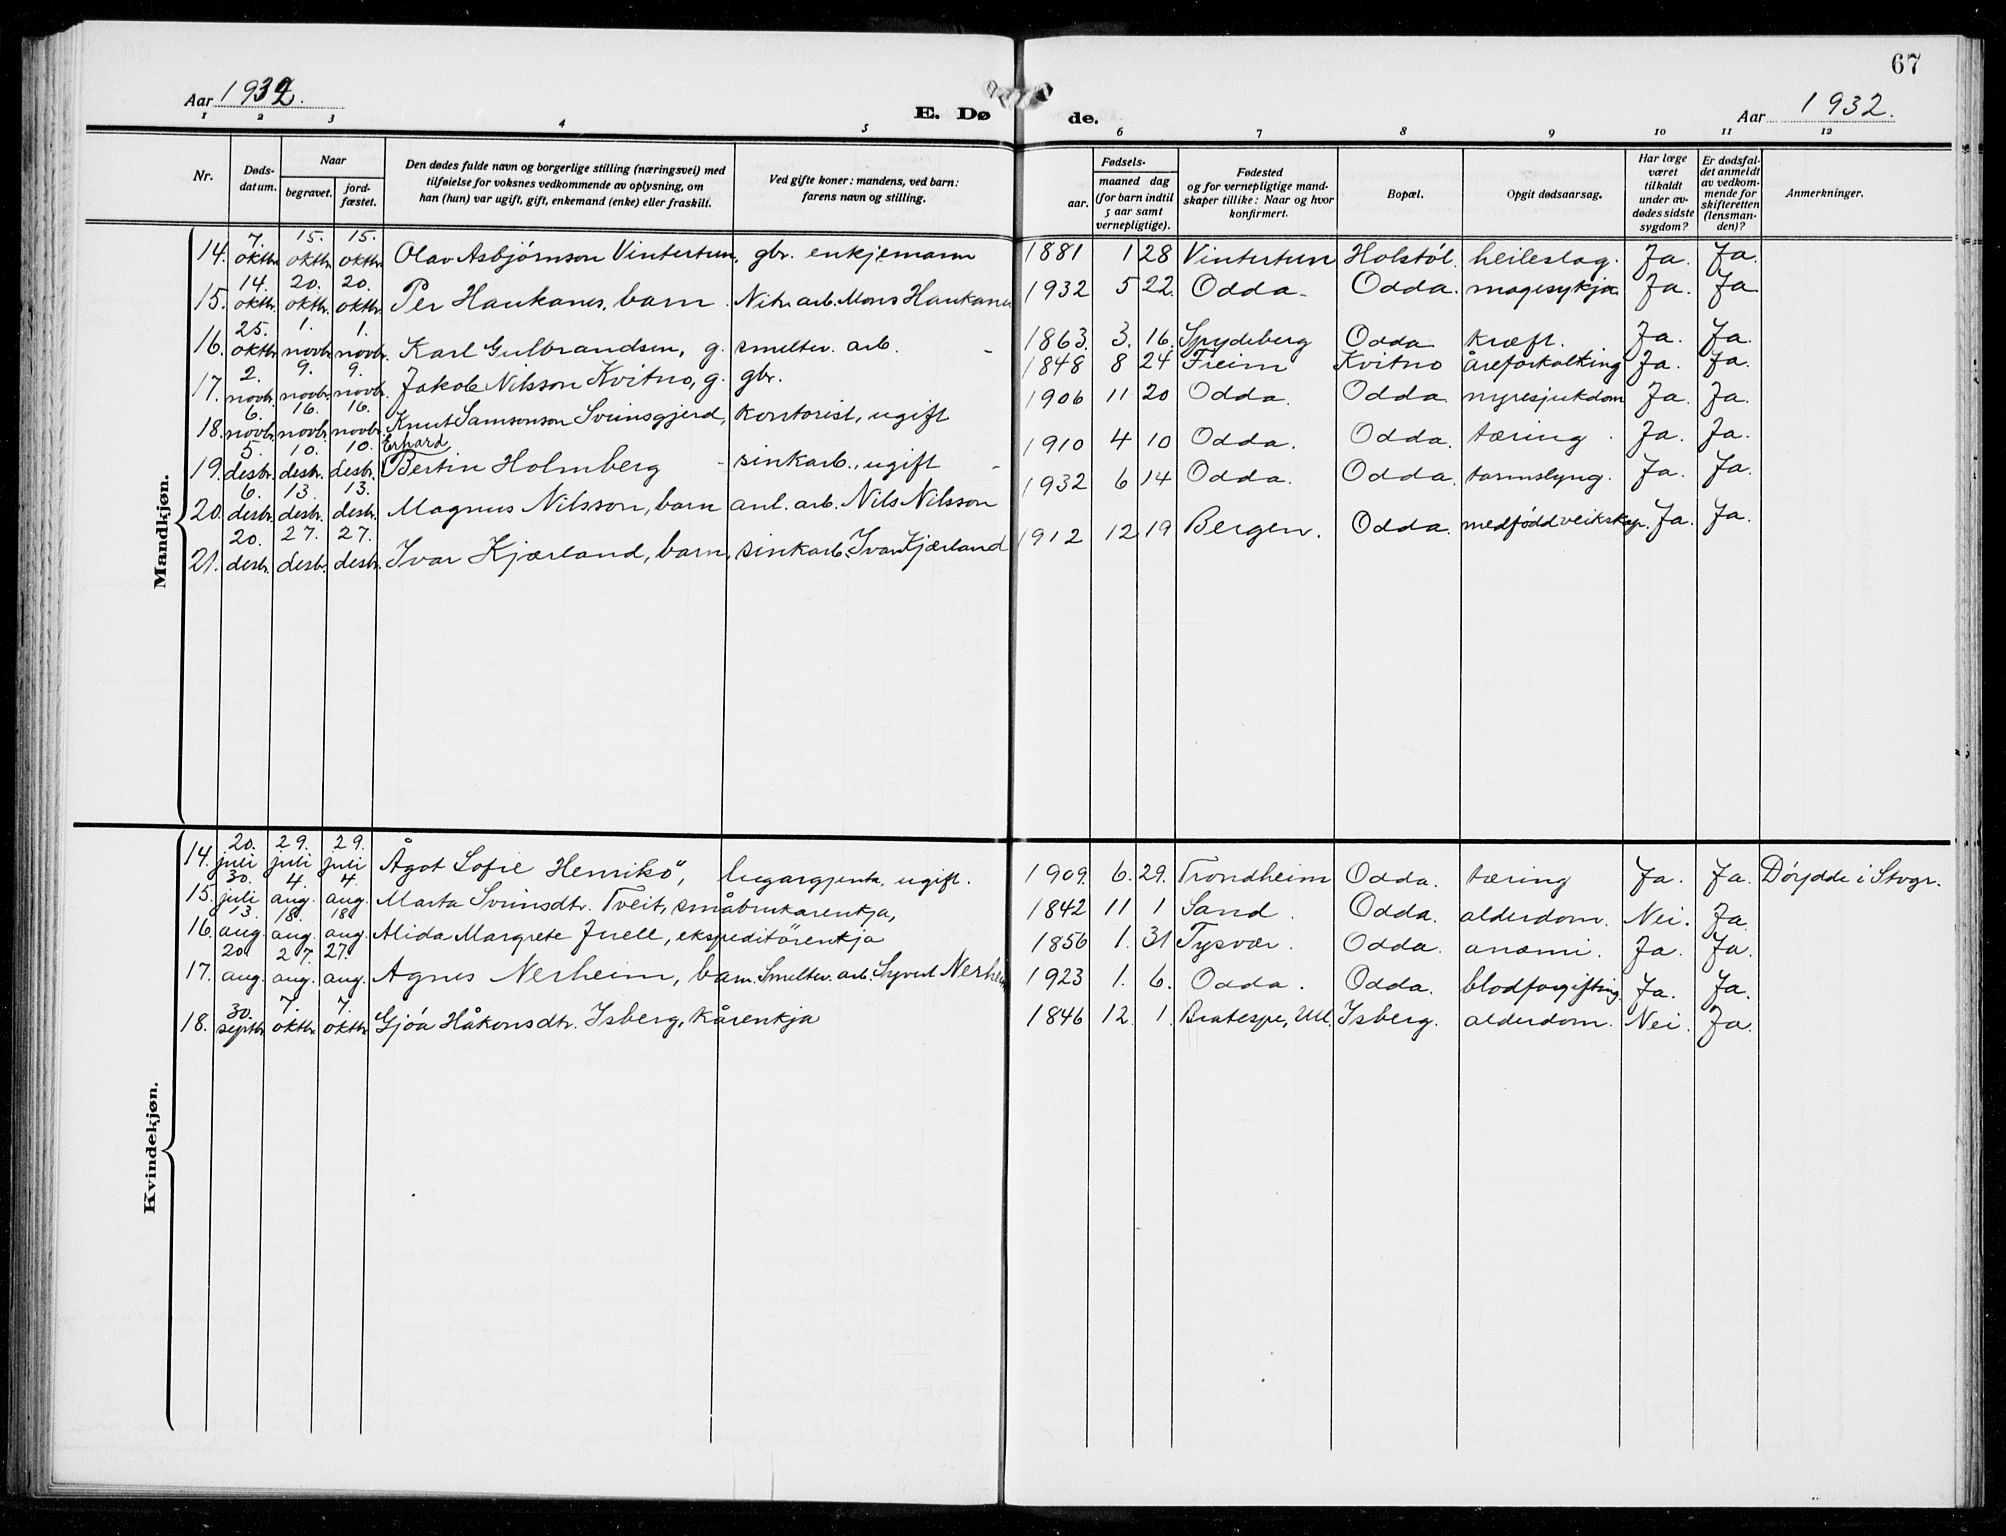 67
Aar 1932.
E. Døde.
Aar 1932.
1 2 3 4 5 6 7 8 9 10 11 12
Nr.
Døds-datum.
Naar
begravet.
jord-fæstet.
Den dødes fulde navn og borgerlige stilling (næringsvei) med
tilføielse for voksnes vedkommende av oplysning, om
han (hun) var ugift, gift, enkemand (enke) eller fraskilt.
Ved gifte koner: mandens, ved barn:
farens navn og stilling.
Fødsels-
aar.
maaned dag
(for barn indtil
5 aar samt
vernepligtige).
Fødested
og for vernepligtige mand-
skaper tillike: Naar og hvor
konfirmert.
Bopæl.
Opgit dødsaarsag.
Har læge
været
tilkaldt
under av-
dødes sidste
sygdom?
Er dødsfal-
det anmeldt
av vedkom-
mende for
skifteretten
(lensman-
den)?
Anmerkninger.
Mandkjøn.
14. 7. oktbr. 15. oktbr. 15. oktbr. Olav Asbjørnson Vintertun, gbr. enkjemann 1881 1 28 Vintertun Holstøl. heileslag. Ja. Ja.
15. 14. oktbr. 20. oktbr. 20. oktbr. Per Haukanes, barn. Nitr. arb. Mons Haukanes 1932 5 22. Odda. Odda. magesykja Ja. Ja
16. 25. oktbr. 1. novbr. 1. novbr. Karl Gulbrandsen, g. smeltev. arb. 1863. 3. 16. Spydeberg Odda kræft. Ja. Ja.
17. 2. novbr. 9. novbr. 9. novbr. Jakob Nilsson Kvitno, g. gbr. 1848 8 24 Freim Kvitno åreforkalking Ja. Ja.
18. 6. novbr. 16. novbr. 16. novbr. Knut Samsonson Svinsgjerd, kontorist, ugift 1906 11 20 Odda. Odda nyresjukdom Ja. Ja.
19. 5. desbr. 10. desbr. 10. desbr. Erhard Bertin Holmberg - sinkarb., ugift 1910 4 10 Odda. Odda. tæring. Ja. Ja.
20. 6. desbr. 13. desbr. 13. desbr. Magnus Nilsson, barn anl. arb. Nils Nilsson 1932 6 14 Odda. Odda. tarmslyng. Ja. Ja.
21. 20. desbr. 27. desbr. 27. desbr. Ivar Kjærland, barn, sinkarb. Ivar Kjærland 1912 12 19 Bergen. Odda. medfødd veikskap. Ja. Ja.
Kvindekjøn.
14. 20. juli 29. juli 29. juli Ågot Sofie Henrikö, hugargjenta, ugift. 1909. 6. 29. Trondheim Odda. tæring Ja. Ja. Døydde i Stvgr.
15. 30. juli 4. aug. 4. aug. Marta Svinsdtr. Tveit, småbrukarenkja, 1842 11 1 Sand. Odda. alderdom. Nei. Ja.
16. 13. aug. 18. aug. 18 aug. Alida Margrete Juell, ekspeditörenkja 1856 1. 31 Tysvær. Odda. anæmi. Ja. Ja.
17. 20 aug. 27. aug. 27. aug. Agnes Nerheim, barn. Smeltev. arb. Syvert Nerheim 1923 1. 6. Odda. Odda. blodforgiftning. Ja. Ja.
18. 30. septbr. 7. oktbr. 7. oktbr. Gjöa Håkonsdtr. Isberg, kårenkja 1846 12. 1. Bratespe, Ull. Isberg. alderdom. Nei. Ja.